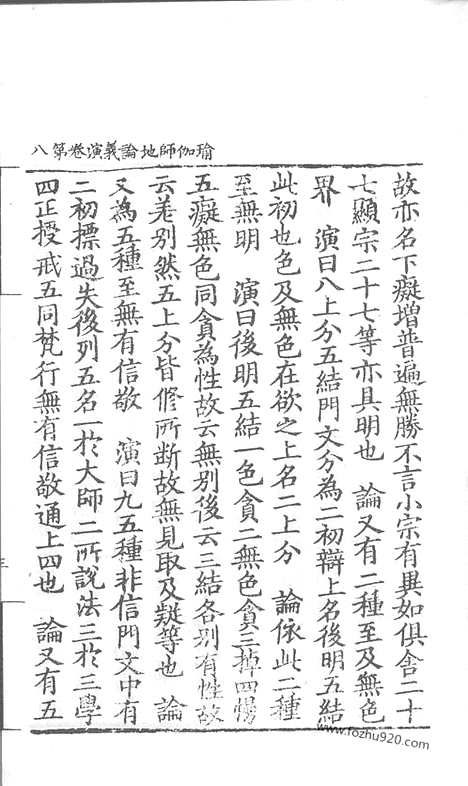 瑜伽師地論義演卷第八
故亦名下癡增普遍無勝不言小宗有異如俱舍二十
七顯宗二十七等亦具明也　論又有二種至及無色
界　演曰八上分五結門文分為二初辯上名後明五結
此初也色及無色在欲之上名二上分　論依此二種
至無明　演曰後明五結一色貪二無色貪三掉四慢
五癡無色同貪為性故云無別後云三結各別有性故
云差別然五上分皆修所斷故無見取及疑等也　論
又為五種至無有信敬　演曰九五種非信門文中有
二初標過失後列五名一於大師二所說法三於三學
四正授戒五同梵行無有信敬通上四也　論又有五
www.fozhu920.com